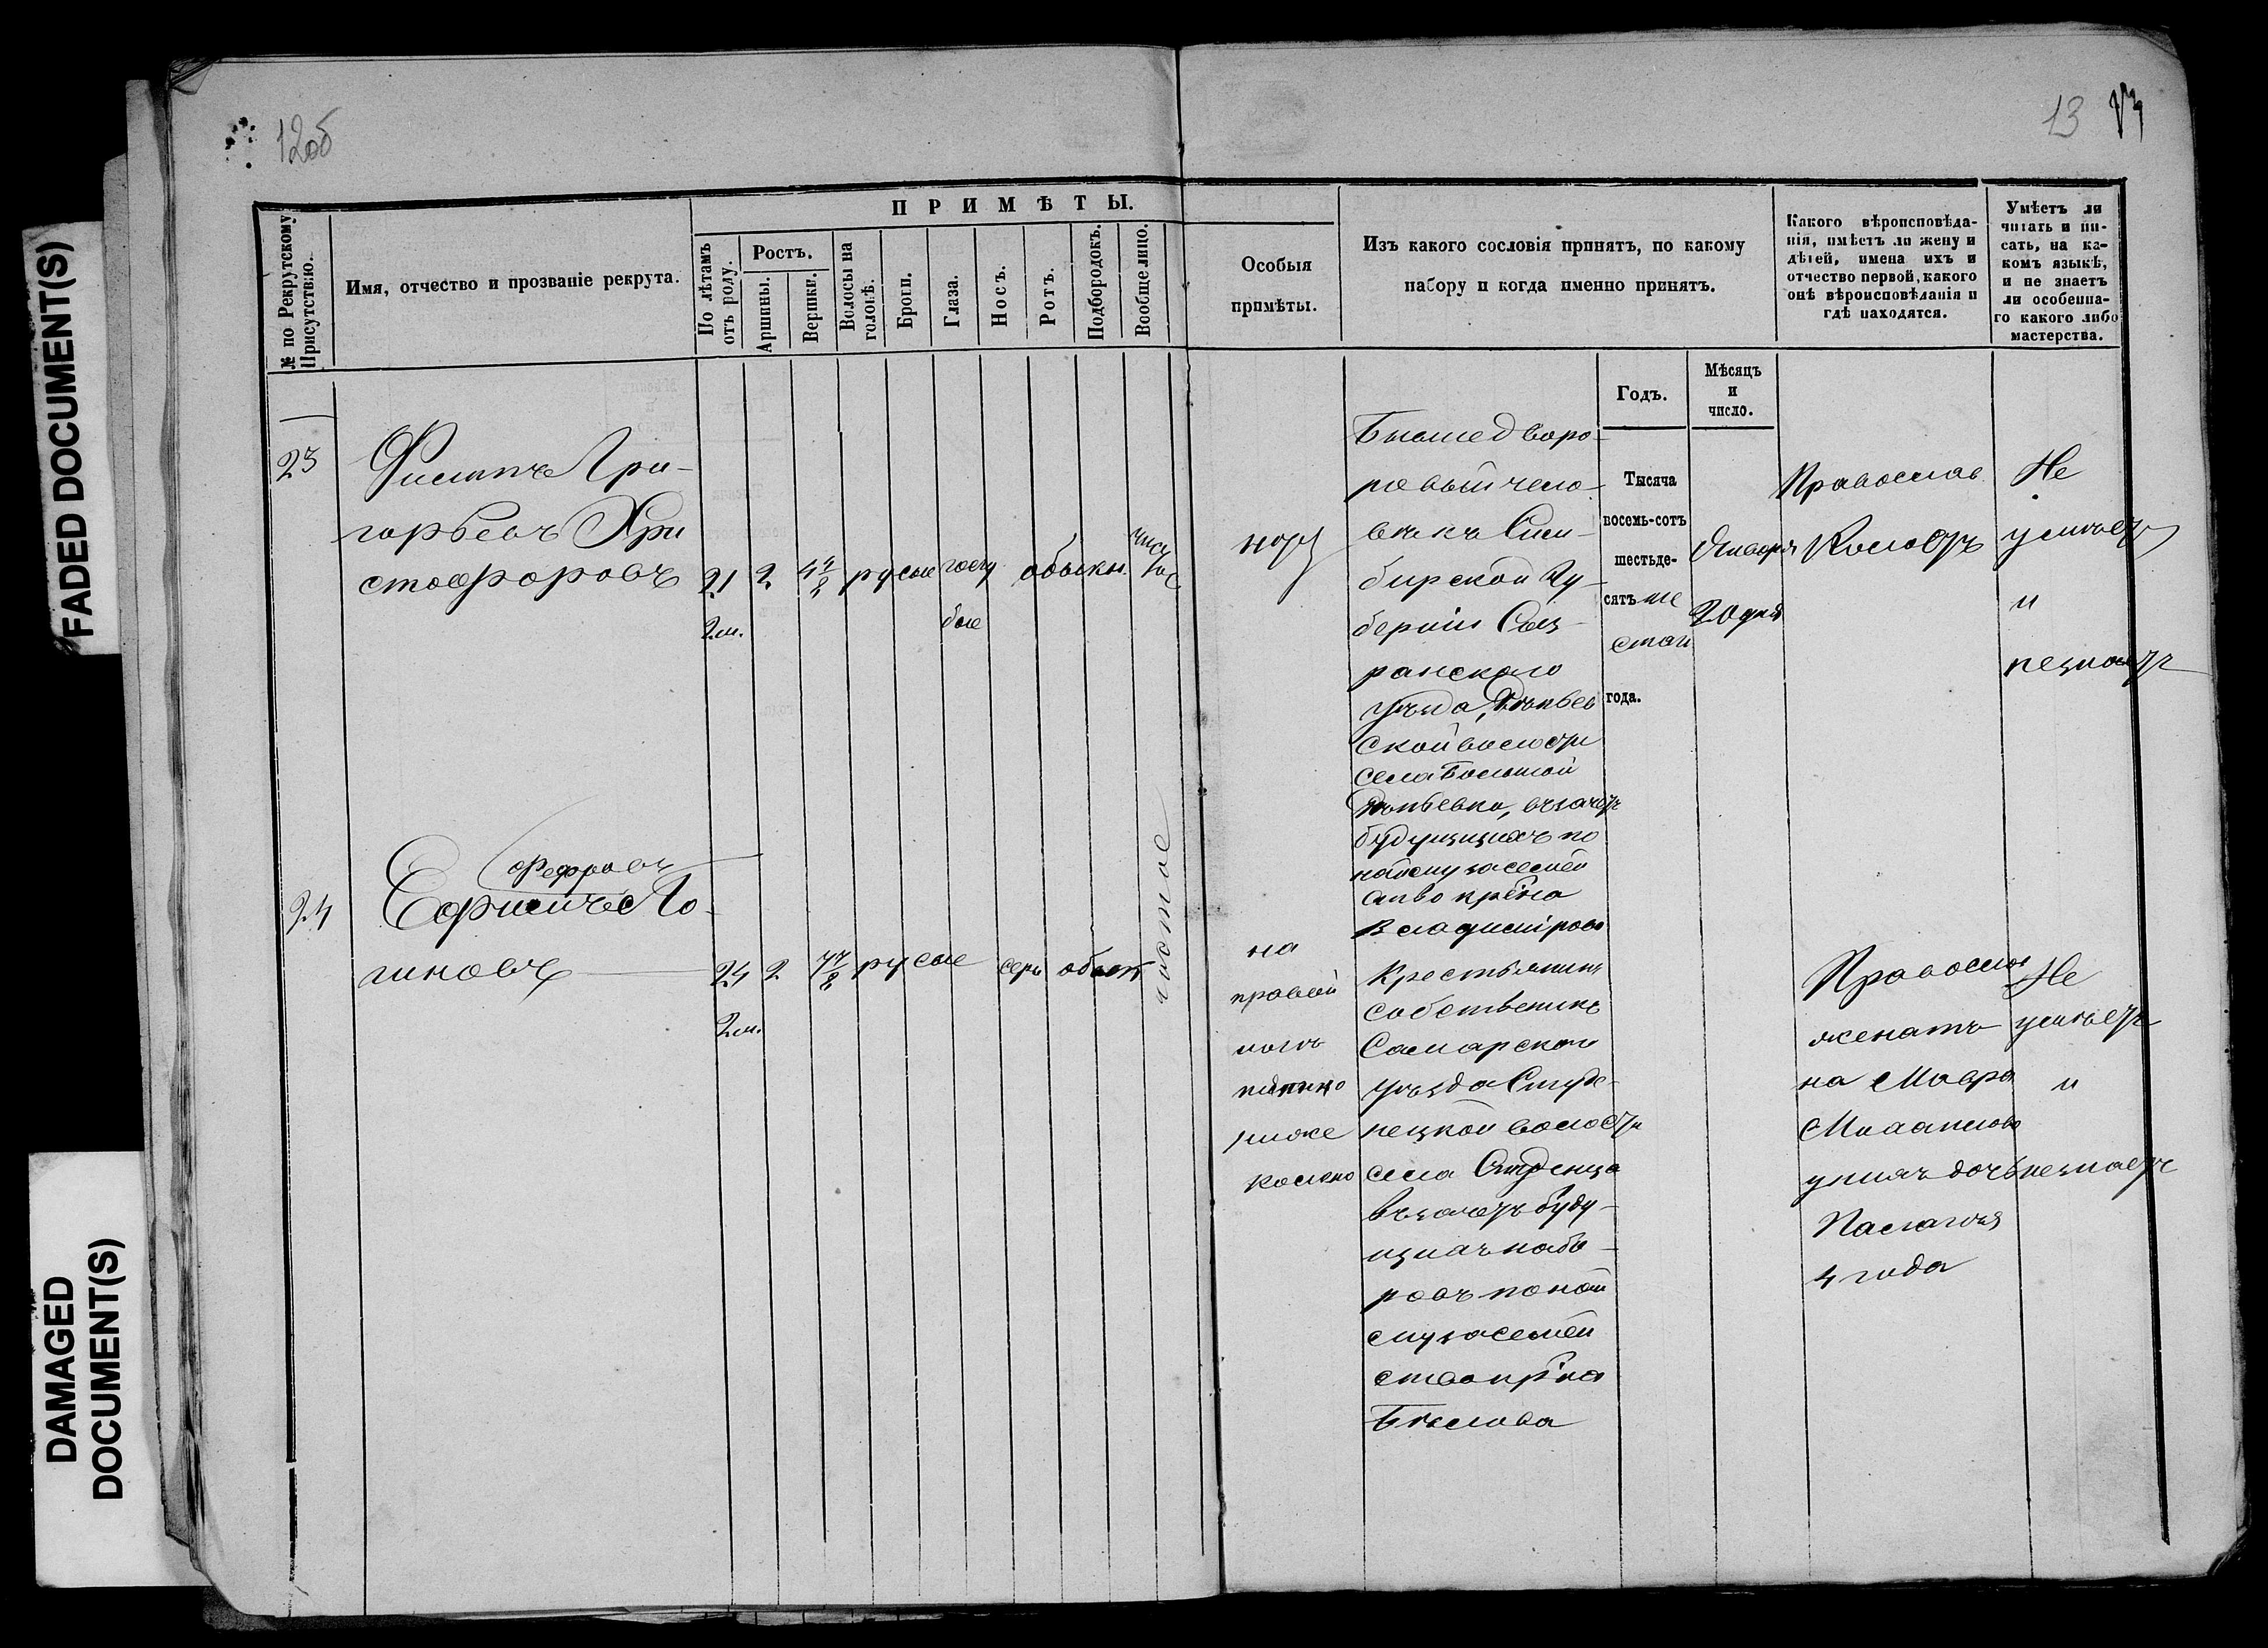 FADED DOCUMENT(S)
DAMAGED
DOCUMENT(S)
12об
13
ПРИМѢТЫ.
№ по Рекрутскому
Присутствію.
Имя, отчество и прозваніе рекрута.
По лѣтамъ
отъ роду.
Ростъ.
Аршины.
Вершки.
Волосы на
головѣ.
Брови.
Глаза.
Носъ.
Ротъ.
Подбородокъ.
Вообще лицо.
Особыя
примѣты.
Изъ какого сословія принятъ, по какому
набору и когда именно принятъ.
Какого вѣроисповѣда-
нія, имѣетъ ли жену и
дѣтей, имена ихъ и
отчество первой, какого
онѣ вѣроисповѣданія и
гдѣ находятся.
Умѣетъ ли
читать и пи-
сать, на ка-
комъ языкѣ,
и не знаетъ
ли особенна-
го какого либо
мастерства.
Годъ.
Мѣсяцъ
и
число.
23
Филипъ Гри-
горьевъ Хри
стофоровъ
21
2м.
2
4 4/8
русые
голу
бые
обыкн.
чис
тое
Бывше дворо-
вый чело-
вѣкъ Сим-
бирской Гу-
берніи Сыз-
ранского
уѣзда,
ской волости
села Большой
въ зачетъ
будущихъ по
найму за семей
ство кр-на
Владимірова
Тысяча
восемь-сотъ
шестьде-
сятъ ше
стаго
года.
Января
20 дня
Православ
Холостъ
Не
умѣетъ
и
незнаетъ
24
Федоровъ
Ефримъ Ло-
гиновъ
24
2м.
2
русые
серы
обыкн
чистое
на
правой
ногѣ
пятно
ниже
колено
Крестьянинъ
собственникъ
Самарского
уѣзда Студе-
нецкой волости
села Студенца
въ зачетъ буду-
щихъ набо-
ровъ по най
му за семей
ство кр-на
Бѣлова
Православ
женатъ
на Мавра
у нихъ дочь
Палагея
4 года
Не
умѣетъ
и
незнаетъ